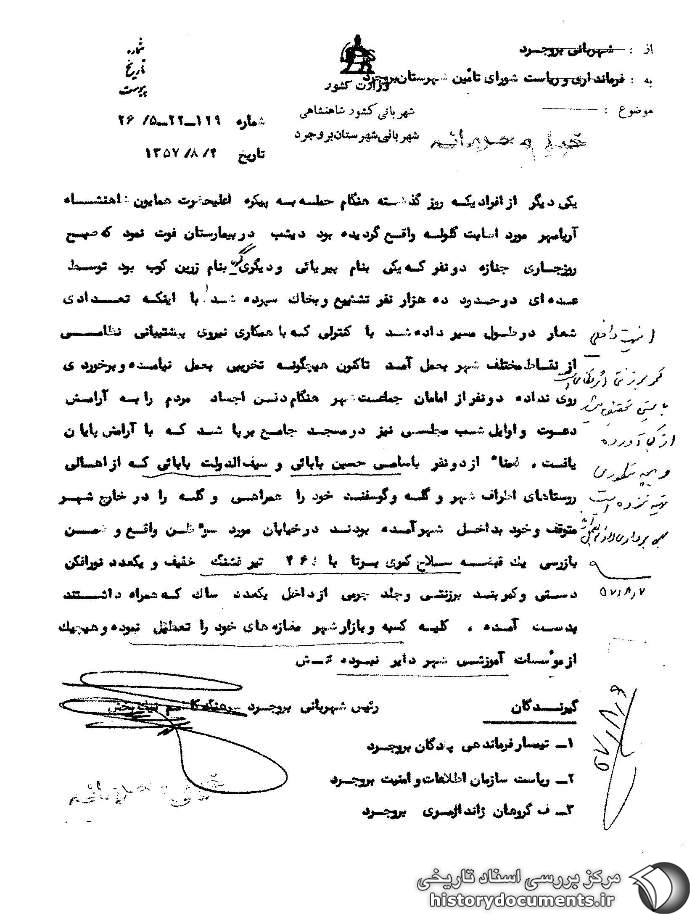 از : شهربانی بروجرد
به : فرمانداری و ریاست شورای تأمین شهرستان بروجرد
موضوع :
وزارت کشور
شهربانی کشور شاهنشاهی
شهربانی شهرستان بروجرد
شماره
تاریخ
پیوست
شماره ۱۱۹-۲۲-۵/ ۲۶
تاریخ ۱۳۵۷/۸/۲
خیلی محرمانه
یکی دیگر از افرادیکه روز گذشته هنگام حمله به پیکره اعلیحضرت همایون شاهنشاه
آریامهر مورد اصابت گلوله واقع گردیده بود دیشب در بیمارستان فوت نمود که صبح
روزجاری جنازه دو نفر که یکی بنام بیریائی و دیگری بنام زرین کوب بود توسط
عده ای در حدود ده هزار نفر تشییع و بخاک سپرده شد با اینکه تعدادی
شعار در طول مسیر داده شد با کنترلی که با همکاری نیروی پشتیبانی نظامی
از نقاط مختلف شهر بعمل آمد تاکنون هیچگونه تخریبی بعمل نیامده و برخوردی
روی نداده دو نفر از امامان جماعت شهر هنگام دفن اجساد مردم را به آرامش
دعوت و اوایل شب مجلسی نیز در مسجد جامع برپا شد که با آرامش پایان
یافت . ضمناً از دو نفر باسامی حسین بابائی و سیف الدولت بابائی که از اهالی
روستاهای اطراف شهر و گله و گوسفند خود را همراهی و گله را در خارج شهر
متوقف و خود بداخل شهر آمده بودند در خیابان مورد سوء ظن واقع و ضمن
بازرسی یک قبضه سلاح کمری برتا با ۴۶ تیر فشنگ خفیف و یکعدد نورافکن
دستی و کمربند برزنتی و جلد چرمی از داخل یکعدد ساک که همراه داشتند
بدست آمده . کلیه کسبه و بازار شهر مغازه های خود را تعطیل نموده و هیچیک
از مؤسسات آموزشی شهر دایر نبوده
امنیت داخلی
از کجا آورده
۵۷/۸/۲
رئیس شهربانی بروجرد
گیرندگان
۱ــ تیمسار فرماندهی پادگان بروجرد
۲ــ ریاست سازمان اطلاعات و امنیت بروجرد
۳ــ ف گروهان ژاندارمری بروجرد
خیلی محرمانه
مرکز بررسی اسناد تاریخی
historydocuments.ir